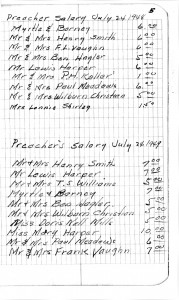 5
Preacher Salary July 24 1948
Myrtle & Barney 6.00
Mr & Mrs Henry Smith 6.00
Mr & Mrs F.L. Vaughn 6
Mr & Mrs Ben Hagler 5
Mr Lewis Harper 5
Mr & Mrs P.H. 1
Mr & Mrs Paul Meadows 6
Mr & Mrs Wilburn Christian 5
Mrs Lonnie Shirley
Preacher's Salary July 24 1949
Mr & Mrs Henry Smith 7.00
Mr Lewis Harper 7
Mr & Mrs T.S. Williams 5
Myrtle & Barney 7
Mr & Mrs Ben Hagler
Mr & Mrs Wilburn Christian
Miss Doris Nell Mills
Miss Mary Harper 10
Mr & Mrs Paul Meadows 6
Mr & Mrs Frank Vaughn 7